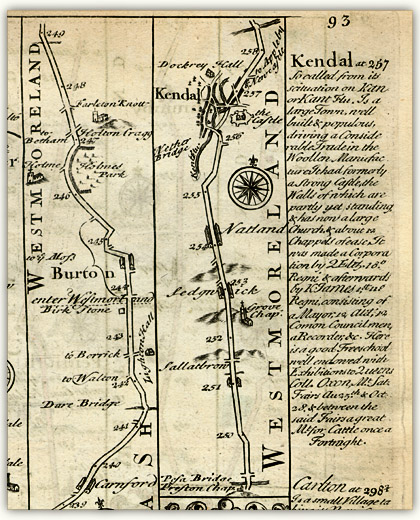 93
249
248
Farleton Knott
to Betham
Holton Cragg
247
Holme
Holmes Park
246
WESTMORELAND
245
to y.e Moss
Burton
244
enter Westmorland
Birk Stone
243
to Borrick
Leighton Hall
242
to Walton
Dare Bridge
241
240
Carnford
239
ASH
258
Dockrey Hall
to Appleby
Kendal
257
the Castle
256
Nether Bridge
WESTMORELAND
Natland
254
Sedgwick
253
Grove Chap.
252
Sallatbrow
251
250
Posa Bridg
Preston Chap.
Kendal at 257
So called from its
scituation on Kan
or Kant Flu. Is a
large Town, well
built & populous
driving a Conside
rable Trade in the
Woollen Manufac
ure It had formerly
a strong Castle, the
Walls of which are
partly yet standing
& has now a large
Church, & about 12
Chappels of ease. It
was made a Corpora
tion by 2. Eliz. 18.
Regni & afterwards
by K. James 1st
Regni, consisting of
a Mayor, 12 Ald, 24
Comon Councilmen,
a Recorder, &c. Here
is a good Freeschool
well endowed with
Exhibitions to Queens
Coll. Oxon. Mt. Sat.
Fairs Ap. 25th & Oct.
28. & between the
said Fairs a great
Mt. for Cattle once a
Fortnight.
Carlton at 298¾
Is a small Village